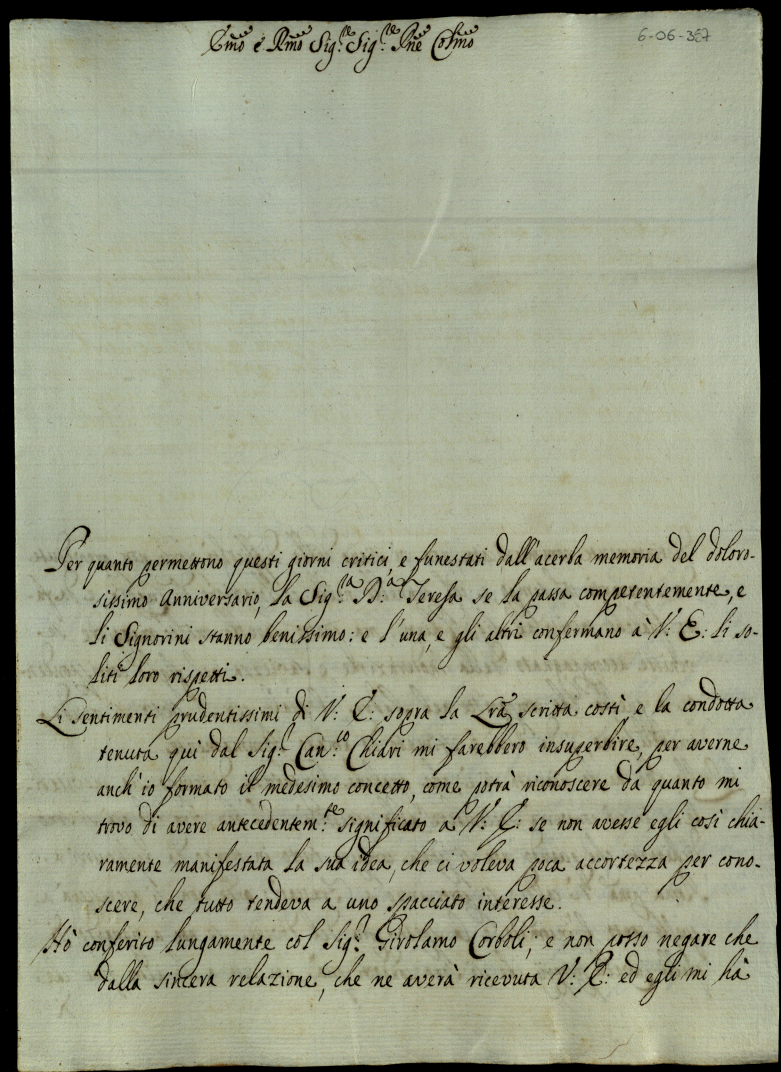 6-06-357
Emo e Rmo Sig.re Sig.re Pne Colmo
Per quanto permettono questi giorni critici, e funestati dall'acerba memoria del doloro-
sissimo Anniversario, la Sig.ra B.a Teresa se la passa competentemente, e
li Signorini stanno benissimo: e l'una, e gli altri confermano à V: E: li so-
liti loro rispetti.
Li sentimenti prudentissimi di V: E: sopra la Lrã scritta costì e la condotta
tenuta quì dal Sig.r Can.co Chiari mi farebbero insuperbire, per averne
anch'io formato il medesimo concetto, come potrà riconoscere da quanto mi
trovo di avere antecedentem.te significato a V: E: se non avesse egli così chia-
ramente manifestata la sua idea, che ci voleva poca accortezza per cono-
scere, che tutto tendeva a uno spacciato interesse.
Hò conferito lungamente col Sig.r Girolamo Corboli; e non posso negare che
dalla sincera relazione, che ne averà ricevuta V: E: ed egli mi hà